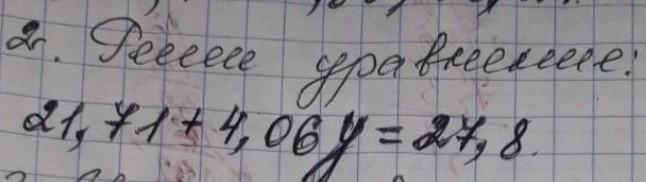 2. Реши уравнение:
21,71 + 4,06 y = 27,8.